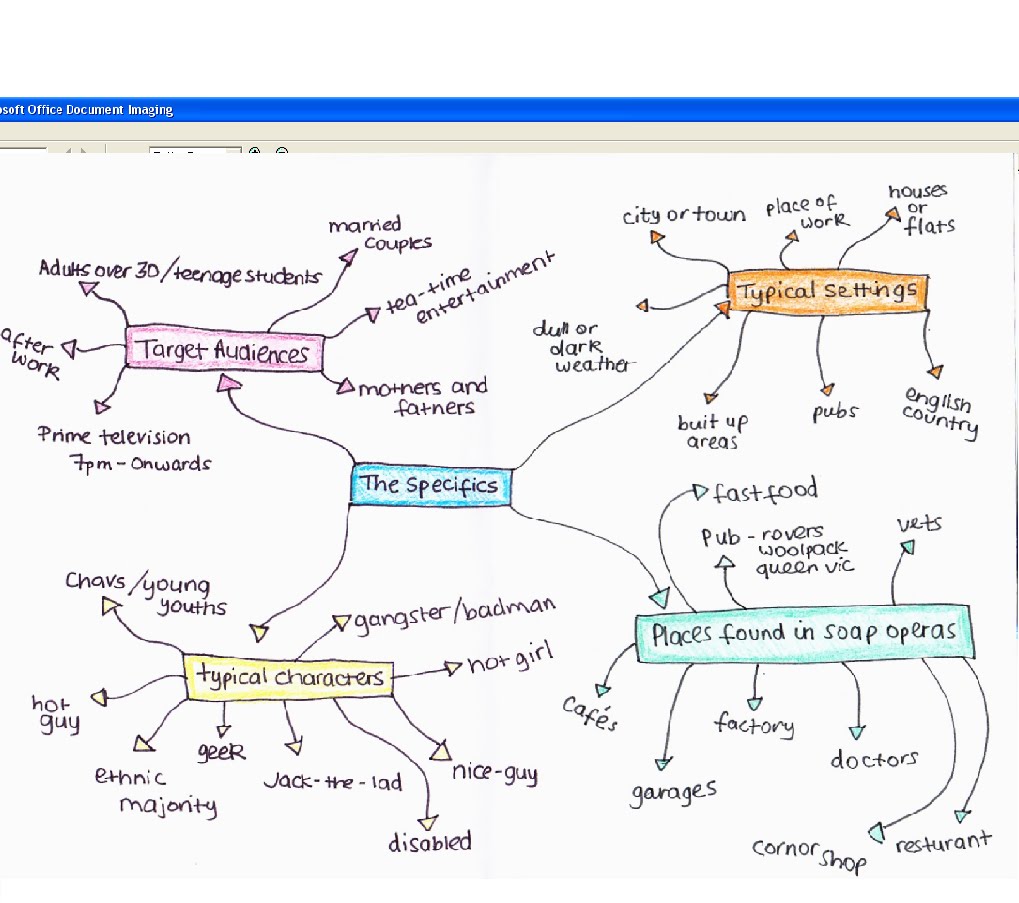 osoft Office Document Imaging
Target Audiences
Adults over 30/teenage students
married
couples
tea-time
entertainment
mothers and
fathers
after
work
Prime television
7pm - Onwards
Typical Settings
city or town
place of
work
houses
or
flats
dull or
dark
weather
buit up
areas
pubs
english
country
The Specifics
typical characters
Chavs /young
youths
gangster/badman
hot girl
hot
guy
ethnic
majority
geek
Jack-the-lad
disabled
nice-guy
Places found in soap operas
fast food
Pub - rovers
woolpack
queen vic
vets
cafés
garages
factory
doctors
cornor shop
resturant